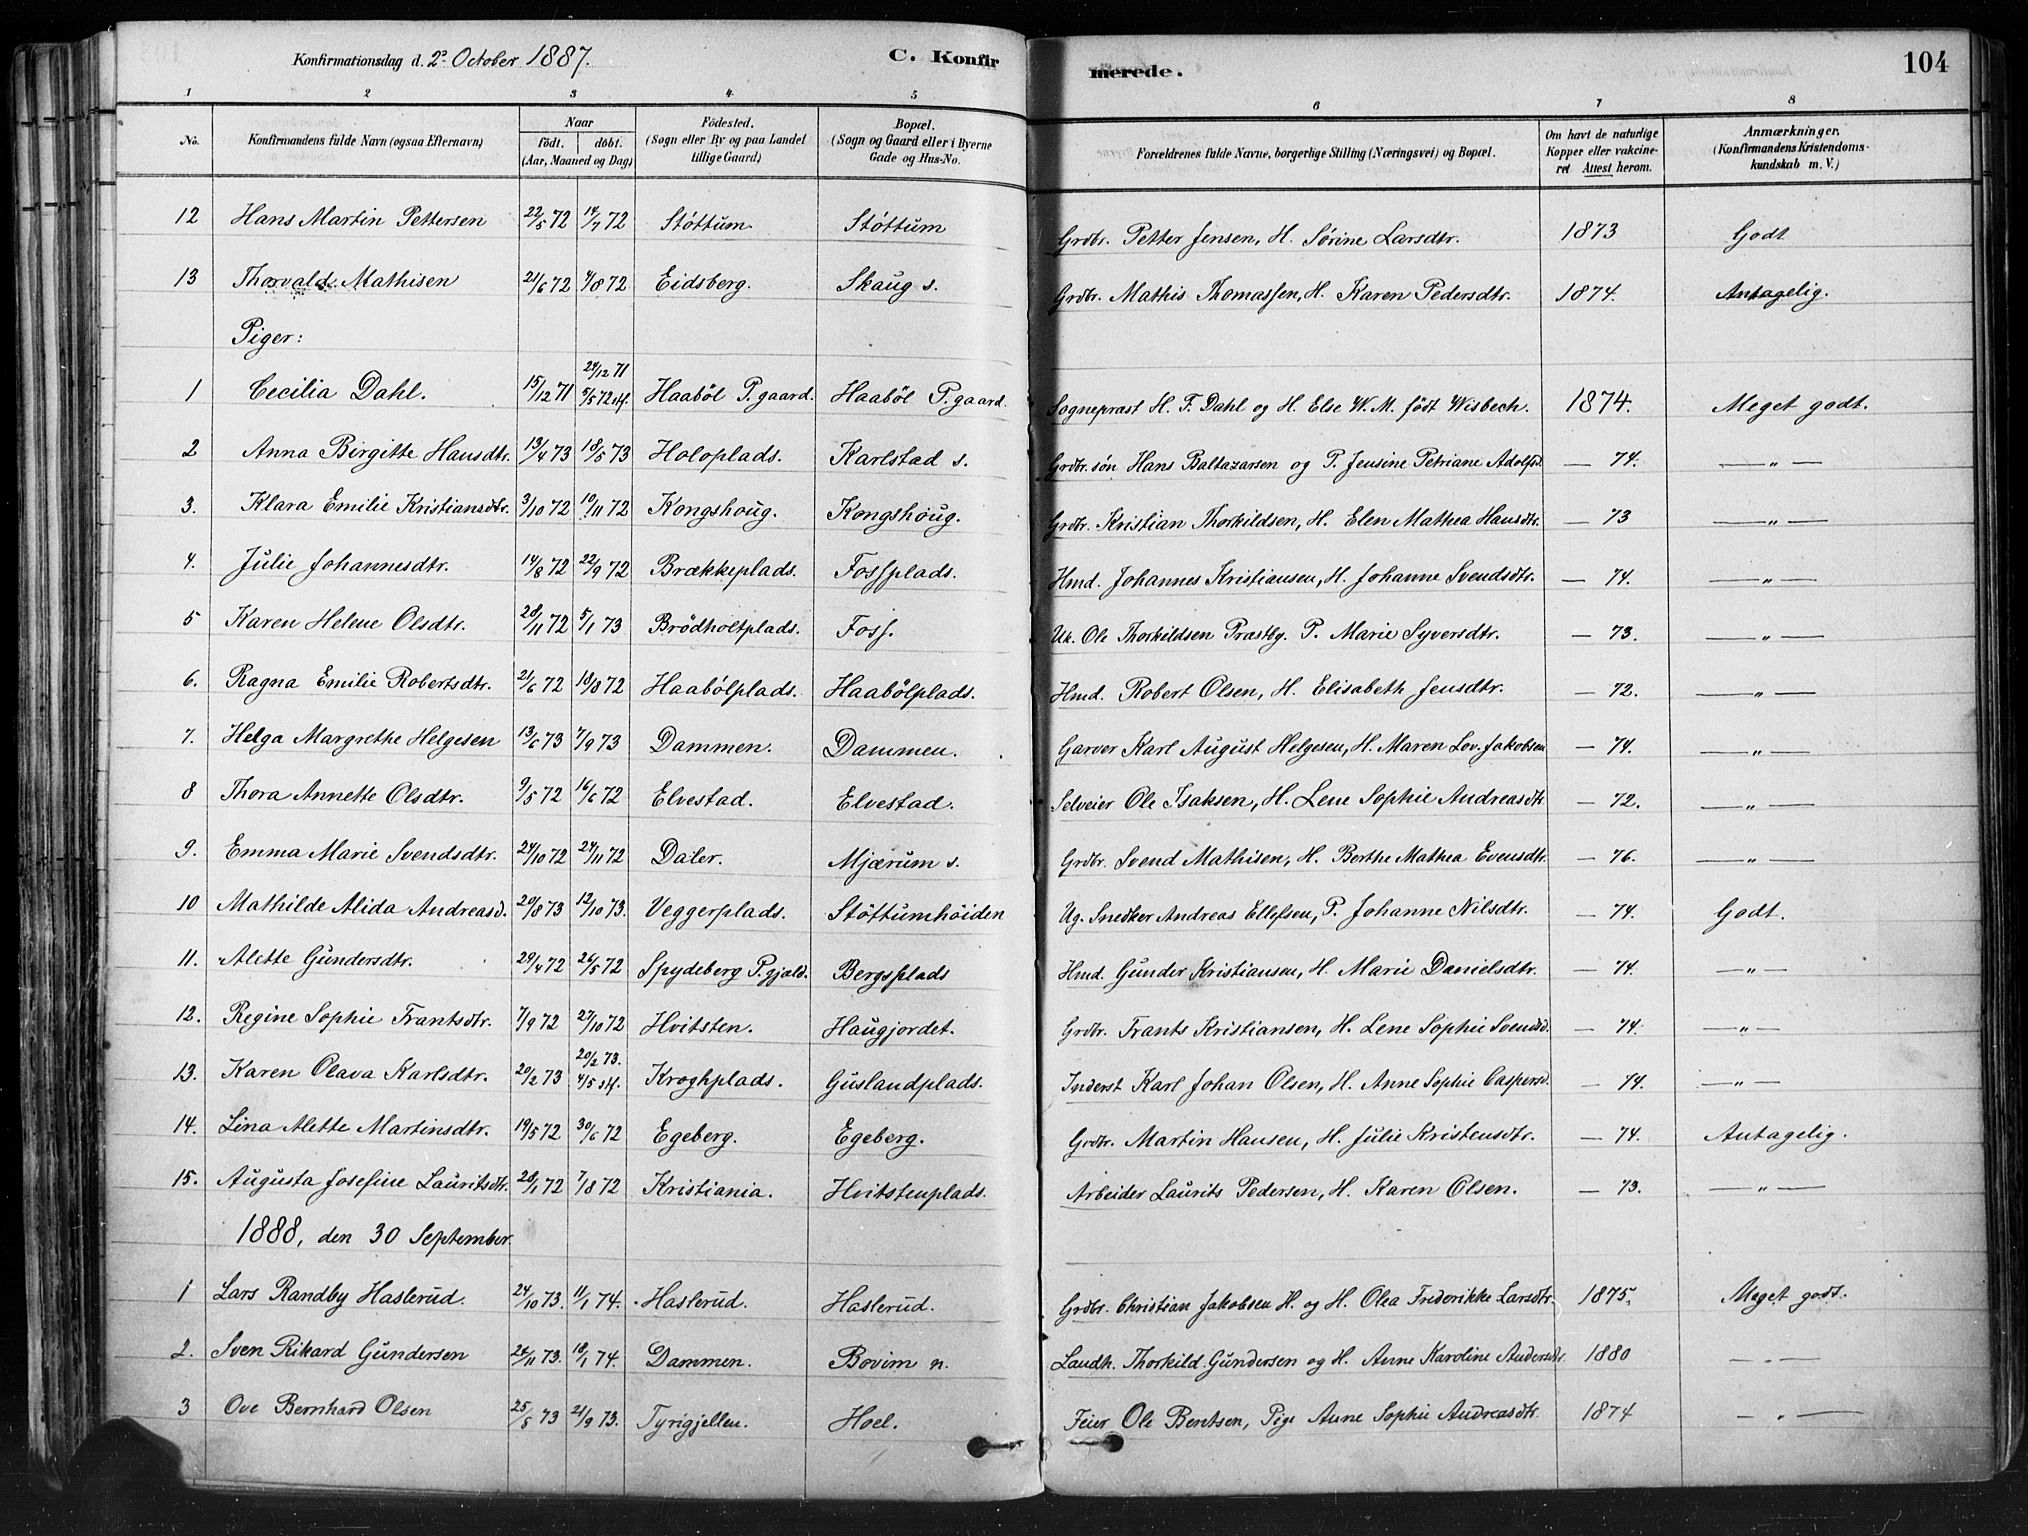 Konfirmationsdag d. 2 October 1887. C. Konfirmerede. 104
1 2 3 4 5 6 7 8
No. Konfirmandens fulde Navn (ogsaa Efternavn) Naar født. døbt. (Aar, Maaned og Dag) Fødested. (Sogn eller By og paa Landet tillige Gaard) Bopæl. (Sogn og Gaard eller i Byerne Gade og Hus-No. Forældrenes fulde Navne, borgerlige Stilling (Næringsvei) og Bopæl. Om havt de naturlige Kopper eller vakcineret Attest herom. Anmærkninger. (Konfirmandens Kristendomskundskab m. V.)
12 Hans Martin Pettersen 22/5 72 14/7 72 Støttum. Støttum Grdbr. Petter Jensen, H. Sørine Larsdtr. 1873 Godt
13 Thorvald Mathisen 21/6 72 4/8 72 Eidsberg. Skaug s. Grdbr. Mathis Thomassen, H. Karen Pedersdtr. 1874. Antagelig.
Piger:
1 Cecilia Dahl. 15/12 71 24/12 71 5/5 72 st. Haabøl P. gaard. Haabøl P. gaard. Sogneprest H. F. Dahl og H. Else W. M. født Wisbech. 1874. Meget godt.
2 Anna Birgitte Hansdtr. 13/4 73 18/5 73 Holoplads. Karlstad s. Grdbr. søn Hans Baltazarsen og P. Jensine Petriane Adolfsd. — 74. — „ —
3. Klara Emilie Kristiansdtr. 3/10 72 10/11 72 Kongshoug. Kongshoug. Grdbr. Kristian Thorkildsen, H. Elen Mathea Hansdtr. — 73 — „ —
4. Julie Johannesdtr. 14/8 72 22/9 72 Brækkeplads. Fossplads. Hmd. Johannes Kristiansen, H. Johanne Svendsdtr. — 74. — „ —
5 Karen Helene Olsdtr. 28/11 72 5/1 73 Brødholtplads. Foss. Uk. Ole Thorkildsen Prestbg. P. Marie Syversdtr. — 73. — „ —
6. Ragna Emilie Robertsdtr. 21/6 72 18/8 72 Haabølplads. Haabølplads. Hmd. Robert Olsen, H. Elisabeth Jensdtr. — 72. — „ —
7. Helga Margrethe Helgesen 13/6 73 7/9 73 Dammen. Dammen. Garver Karl August Helgesen, H. Maren Lov. Jakobsen — 74. — „ —
8 Thora Annette Olsdtr. 9/5 72 16/6 72 Elvestad. Elvestad. Selveier Ole Isaksen, H. Lene Sophie Andreasdtr. — 72. — „ —
9. Emma Marie Svendsdtr. 24/10 72 24/11 72 Daler. Mjærum s. Grdbr. Svend Mathisen, H. Berthe Mathea Evensdtr. — 76. — „ —
10 Mathilde Alida Andreasd. 20/8 73 12/10 73. Veggerplads. Støttumhøiden Ug. Snedker Andreas Ellefsen, P. Johanne Nilsdtr. — 74. Godt.
11. Alette Gundersdtr. 29/4 72 26/5 72 Spydeberg P. gjæld. Bergsplads Hmd. Gunder Kristiansen, H. Marie Danielsdtr. — 74. — „ —
12. Regine Sophie Frantsdtr. 7/9 72 27/10 72 Hvitsten. Haugjordet. Grdbr. Frants Kristiansen, H. Lene Sophie Svendsd. — 74. — „ —
13. Karen Olava Karlsdtr. 20/2 73 20/2 73. 4/5 st. Kroghplads. Guslandplads. Inderst Karl Johan Olsen, H. Anne Sophie Caspersd. — 74. — „ —
14. Lina Alette Martinsdtr. 19/5 72 30/6 72 Egeberg. Egeberg. Grdbr. Martin Hansen, H. Julie Kristensdtr. — 74. Antagelig.
15. Augusta Josefine Lauritsdtr. 28/1 72 7/8 72 Kristiania. Hvitstenplads. Arbeider Laurits Pedersen, H. Karen Olsen. — 73. — „ —
1888, den 30 September.
1 Lars Randby Haslerud. 24/10 73. 11/1 74. Haslerud. Haslerud. Grdbr. Christian Jakobsen H. og H. Olea Frederikke Larsdtr. 1875. Meget godt.
2. Sven Rikard Gundersen 24/11 73. 18/1 74. Dammen. Bovim n. Landh. Thorkild Gundersen og H. Anne Karoline Andersdtr. 1880 — „ —
3 Ove Bernhard Olsen 25/8 73 21/9 73. Tyrigjellen. Hoel. Feier Ole Bentsen, Pige Anne Sophie Andreasdtr. 1874 — „ —